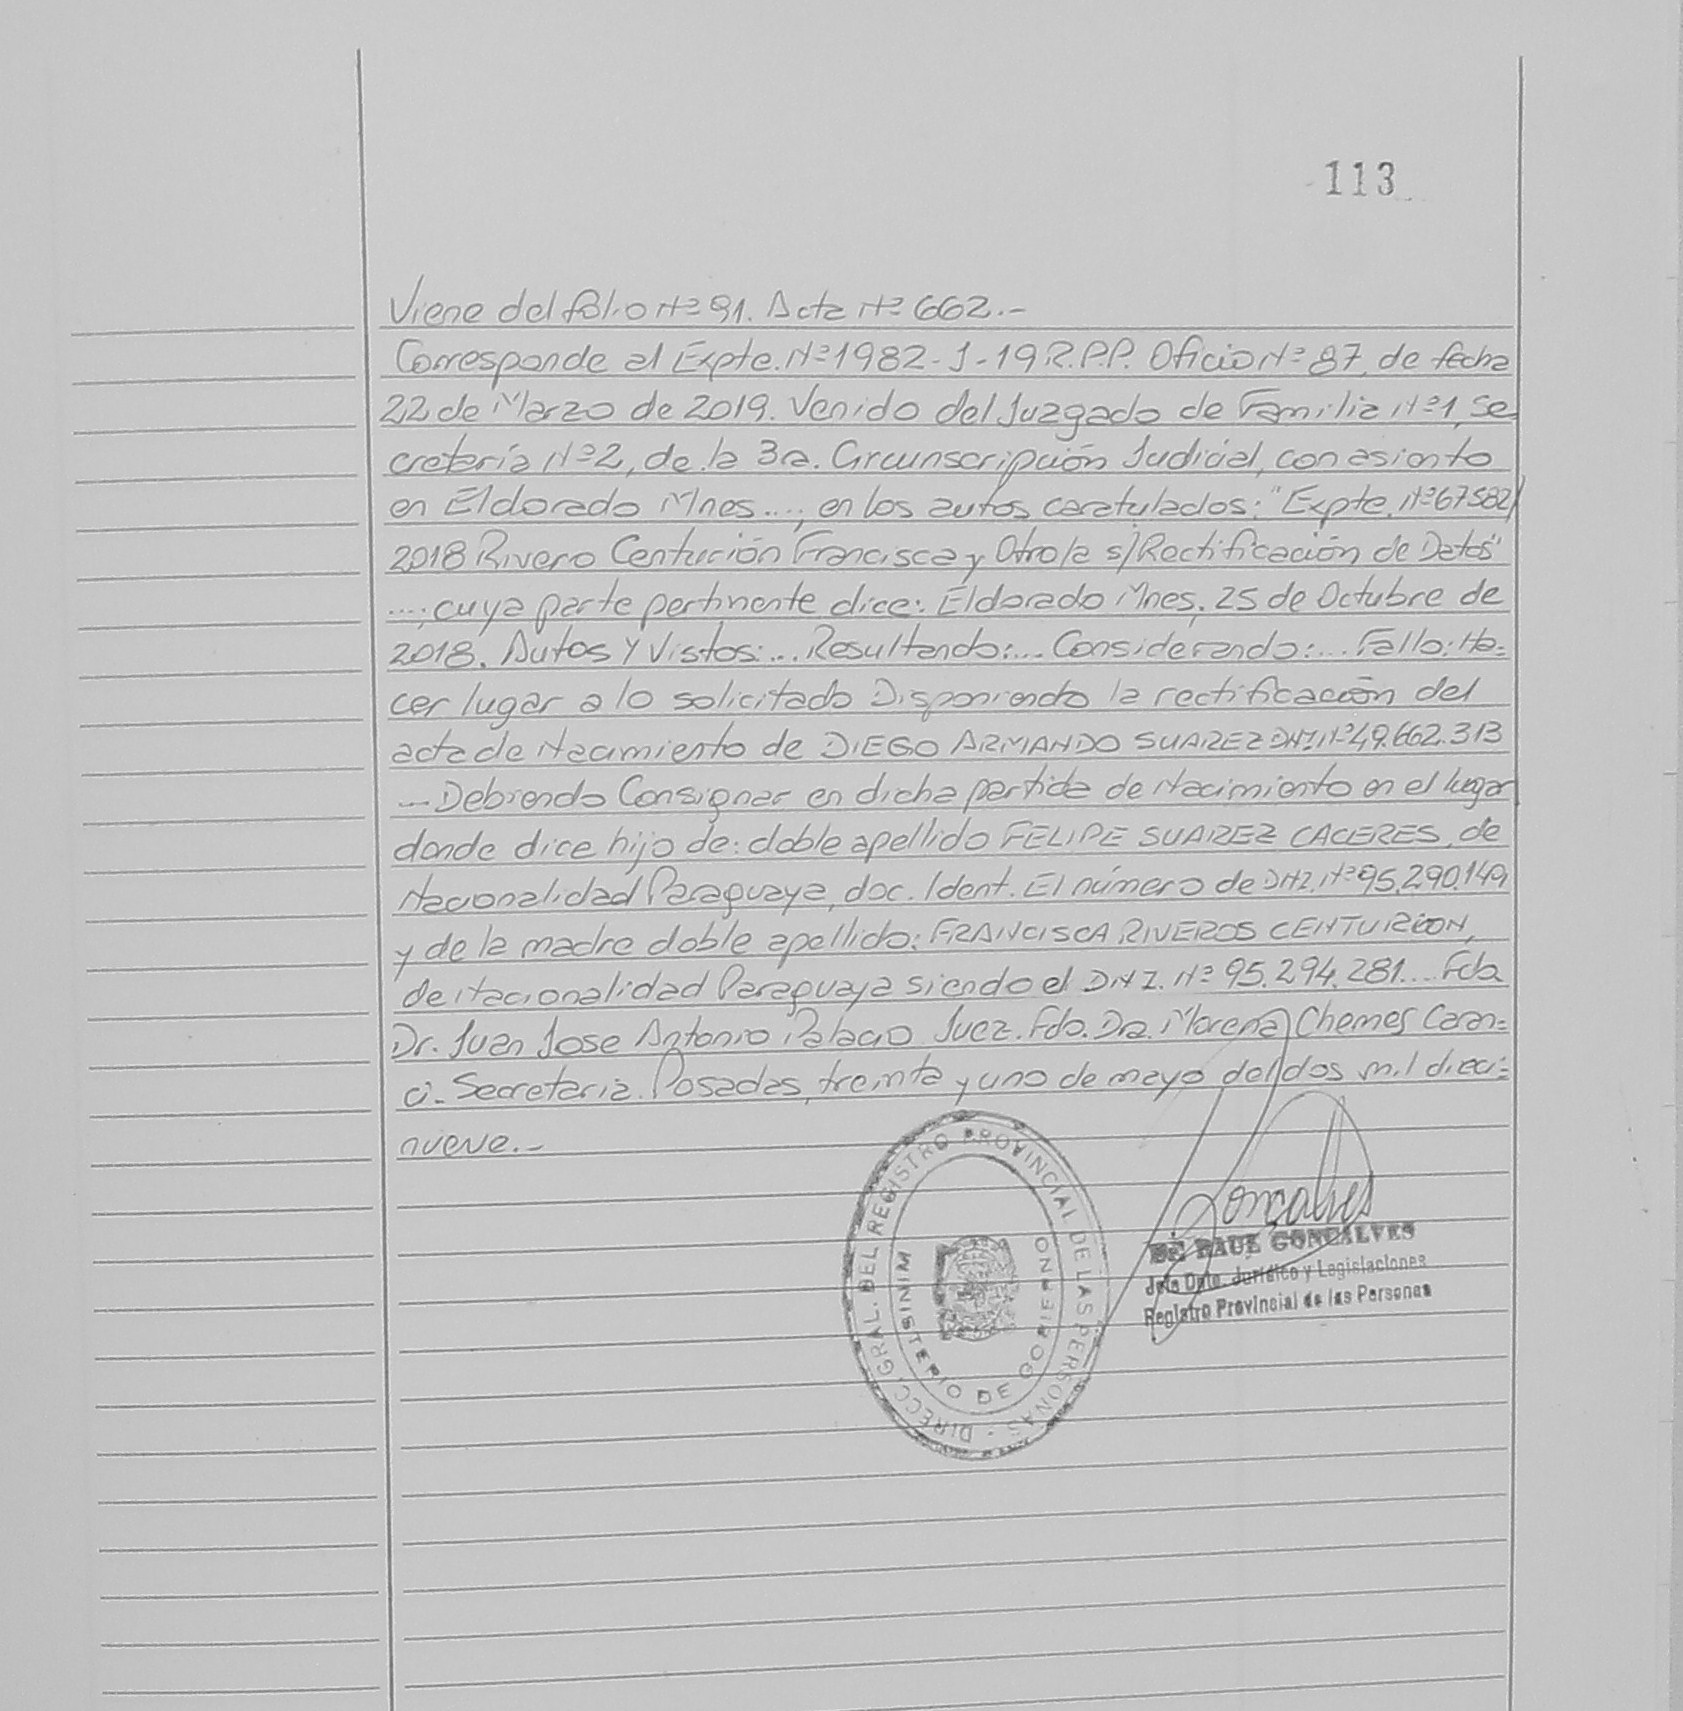 113
Viene del folio Nº 91. Acta Nº 662.-
Corresponde al Expte. Nº 1982-J-19 R.P.P. Oficio Nº 87, de fecha
22 de Marzo de 2019. Venido del Juzgado de Familia Nº 1, Se
cretaría Nº 2, de la 3ra. Circunscripción Judicial, con asiento
en Eldorado Mnes...., en los autos caratulados: "Expte. Nº 67582/
2018 Rivero Centución Francisca y Otro/a s/ Rectificación de Datos"
....; cuya parte pertinente dice: Eldorado Mnes, 25 de Octubre de
2018. Autos Y Vistos:... Resultando:... Considerando:... Fallo: Ha=
cer lugar a lo solicitado Disponiendo la rectificación del
acta de Nacimiento de DIEGO ARMANDO SUAREZ DNI Nº 49.662.313
...Debiendo Consignar en dicha partida de Nacimiento en el lugar
donde dice hijo de: doble apellido FELIPE SUAREZ CACERES, de
Nacionalidad Paraguaya, doc. Ident. El número de DNI. Nº 95.290.149,
y de la madre doble apellido: FRANCISCA RIVEROS CENTURION,
de Nacionalidad Paraguaya siendo el DNI. Nº 95.294.281... Fdo
Dr. Juan Jose Antonio Palacio Juez. Fdo. Dra. Morena Chemes Caran=
ci- Secretaria. Posadas, treinta y uno de mayo del dos mil dieci=
nueve.-
DIRECC. GRAL. DEL REGISTRO PROVINCIAL DE LAS PERSONAS -
MINISTERIO DE GOBIERNO
Goncalves
RAUL GONCALVES
Jefe Dpto. Jurídico y Legislaciones
Registro Provincial de las Personas